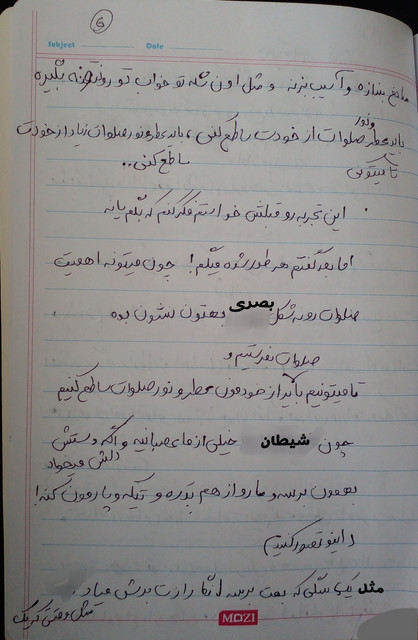 6
Subject Date
مانع بندازه و آسیب بزنه و مثل اون شه تو خواب تو رو نتونه بگیره
باید عطر و نور صلوات از خودت ساطع کنی، باید عطر و نور صلوات زیاد از خودت
تا میتونی ساطع کنی..
این تجربه رو قبلش خواستم فکر کنم که بگم یا نه
اما بعد گفتم هر طور شده میگم! چون میتونه اهمیت
صلوات رو به شکل بصری بهتون نشون بده
صلوات بفرستیم و
تا میتونیم باید از خودمون عطر و نور صلوات ساطع کنیم
چون شیطان خیلی از ما عصبانیه و اگه دستش
دلش میخواد
بهمون برسه و ما رو از هم بدره و تیکه و پارمون کنه!
و اینو تصور کنید
مثل یک سگی که بهت برسه
مثل وقتی گرگ
MOZI